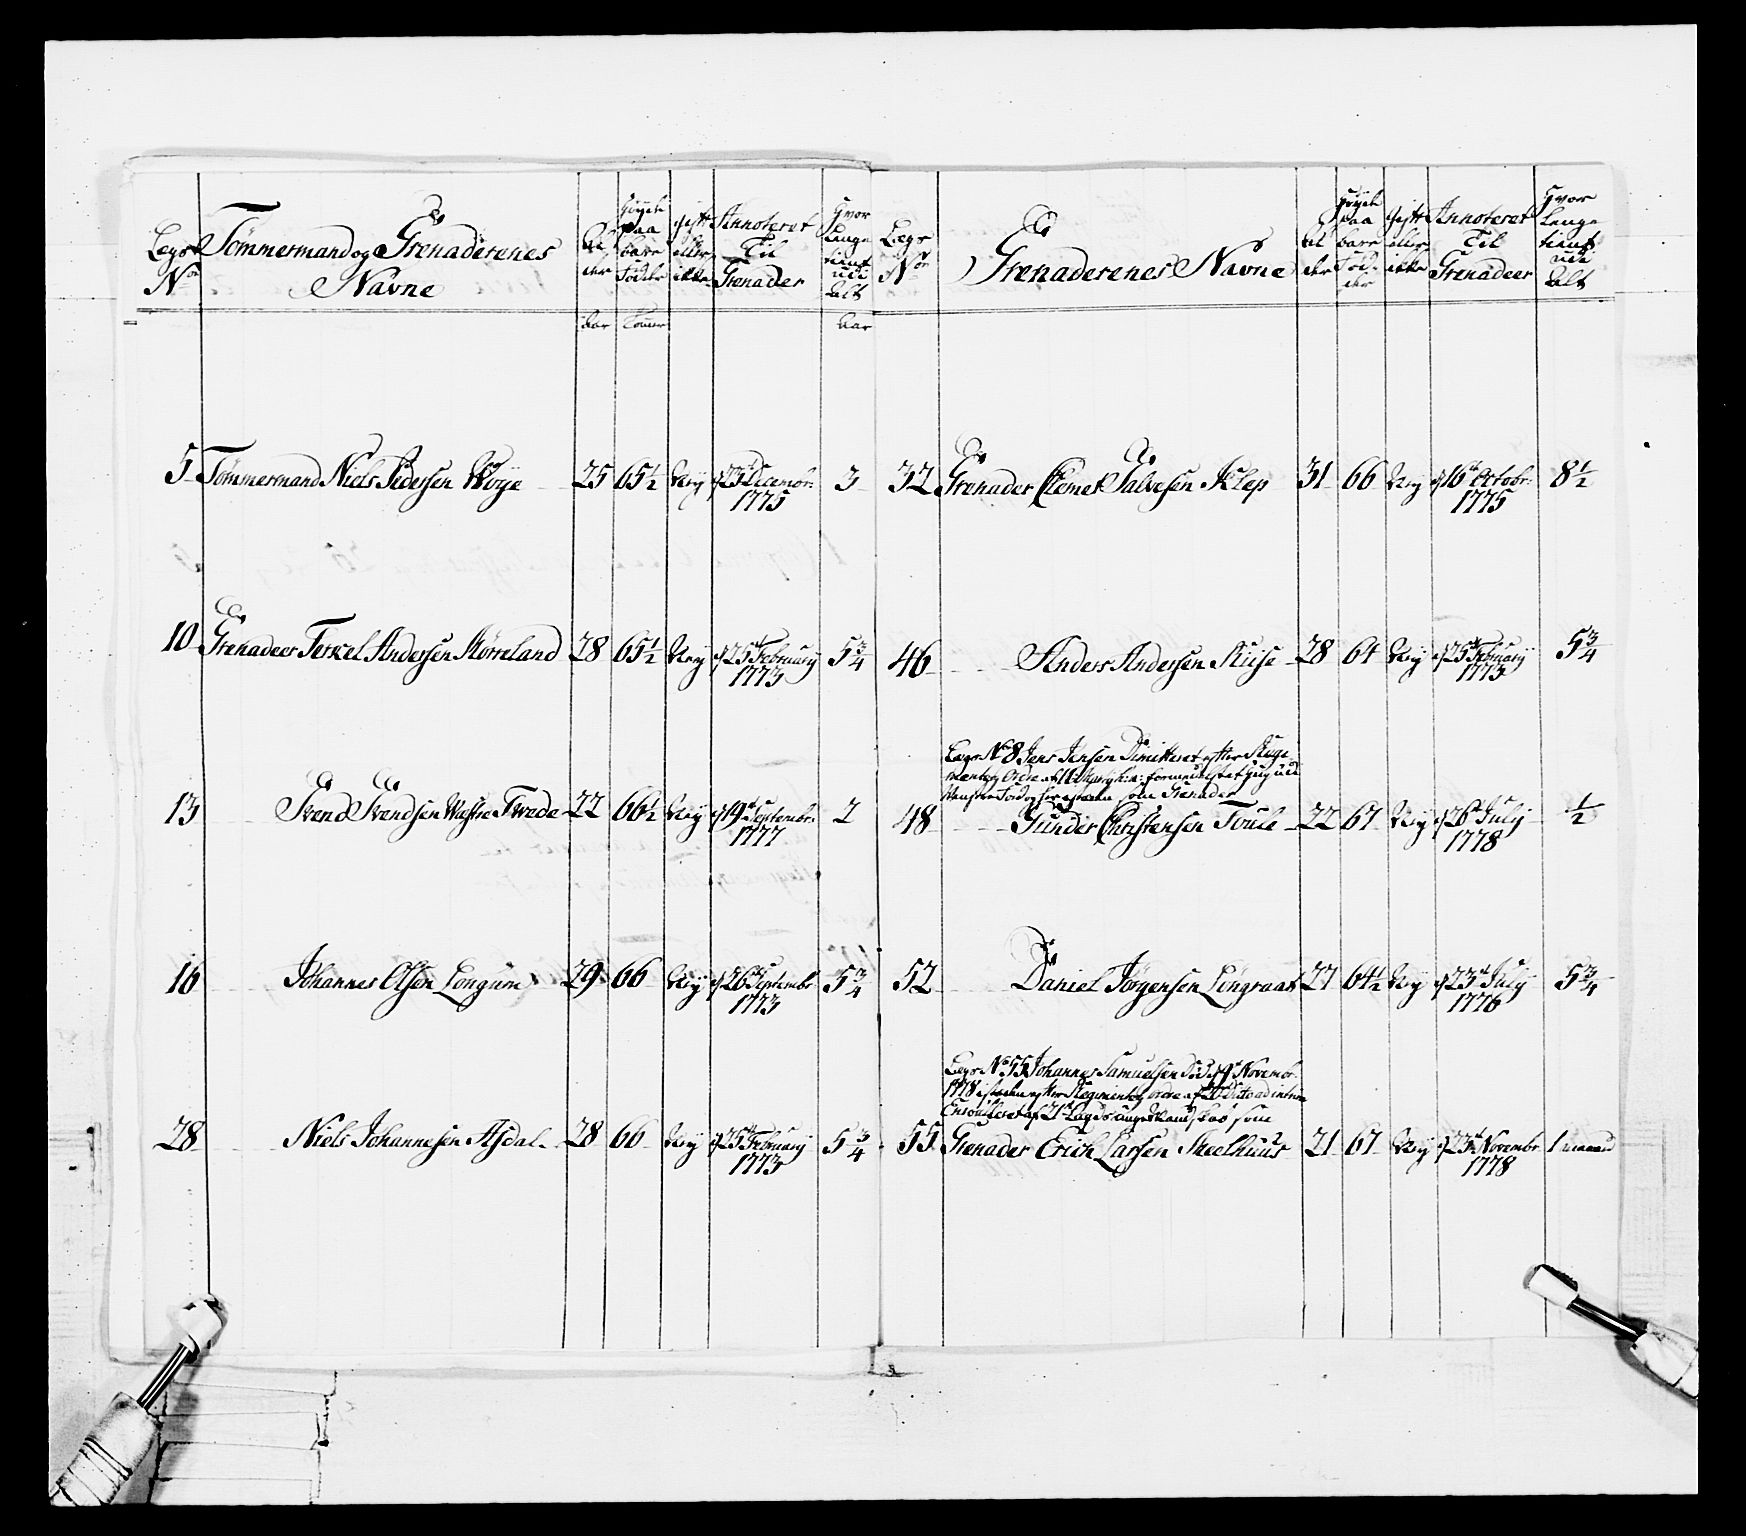 Legs Nor
Tømmermand og Grenaderenes Navne
Al der
Høyde paa bare Fødder
Gift eller ikke
Annoteret Til Grenader
Hvor Længe tient udi Alt
Aar Tommer Aar
5 Tømmermand Niels Pedersen Woye 25 65½ Ney d 23de Decembr: 1775 3
10 Grenadeer Terkel Andersen Mørreland 28 65½ Ney d 25de February 1773 5¾
13 Svend Svendsen Westre Twede 22 66½ Ney d 19de Septembr: 1777 2
16 Johannes Olsen Longum 29 66 Ney d 26de Septembr 1773 5¾
28 Niels Johannesen Asdal 28 66 Ney d 25de February 1773 5¾
Legs Nor
Grenaderenes Navne
Al der
Høyde paa bare Fød: der
Gift eller ikke
Annoteret Til Grenadeer
Hvor Længe tient udi Alt
32 Grenader Clemet Salvesen Klep 31 66 Ney d 16de Octobr: 1775 8½
46 Anders Andersen Kiise 28 64 Ney d 25de February 1773 5¾
Legs No 8 Jens Jensen Dimitteret efter Regi
mentz Ordre af
Venstre Fod og som Grenader
48 Gunder Christensen Toule 22 67 Ney d 26de July 1778 ½
52 Daniel Jørgensen Longraas 27 64½ Ney d 23de July 1776 5¾
Legs No 55 Johannes Samuelsen Død d 9de Novembr:
1778 efter Regimentz Ordre af
Enroulleret af 21de Lægd som
55 Grenader Erich Larsen Skeelhuus 21 67 Ney d 23de Novembr 1778 1 maaned